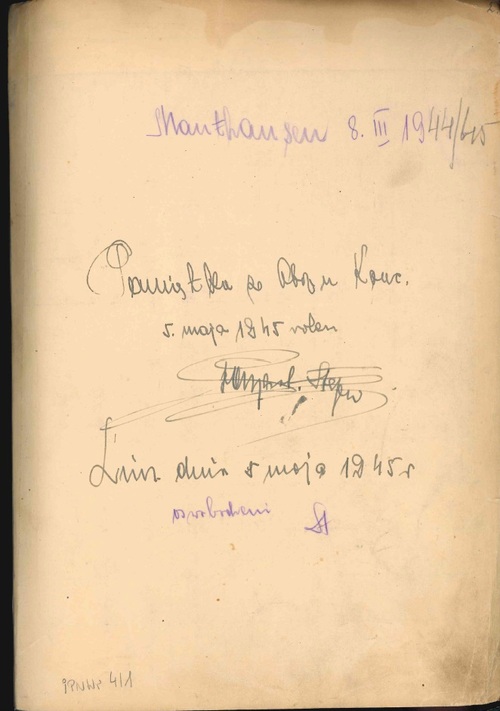 Mauthausen 8. III 1944/45
Pamiątka z Obozu Konc.
5. maja 1945 rolen
Linz dnia 5 maja 1945 r
oswobodzeni
4/1